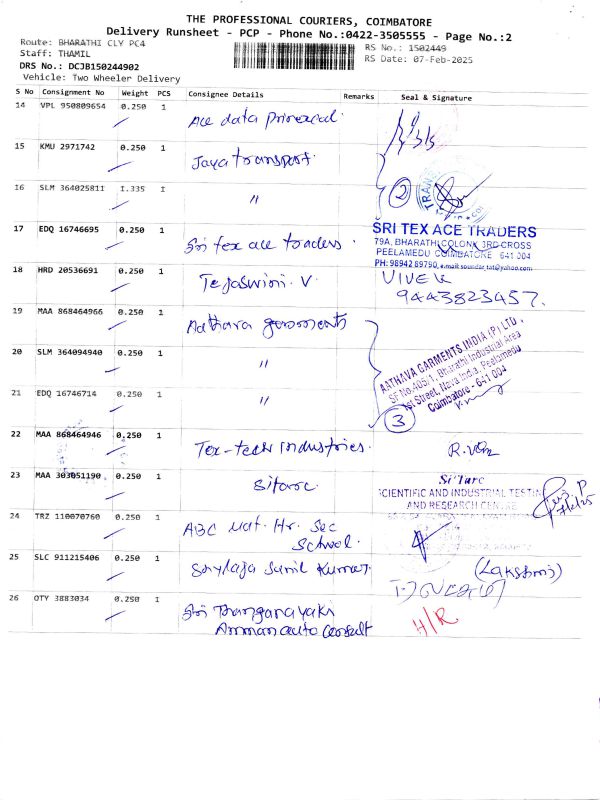 THE PROFESSIONAL COURIERS, COIMBATORE
Delivery Runsheet - PCP - Phone No.:0422-3505555 - Page No.:2
Route: BHARATHI CLY PC4
Staff: THAMIL
DRS No.: DCJB150244902
Vehicle: Two Wheeler Delivery
RS No.: 1502449
RS Date: 07-Feb-2025
S No Consignment No Weight PCS Consignee Details Remarks Seal & Signature
14 VPL 950809654 0.250 1 Ace data
15 KMU 2971742 0.250 1 Jaya transport.
16 SLM 364025811 1.335 1 "
2
17 EDQ 16746695 0.250 1 Sri tex ace traders.
SRI TEX ACE TRADERS
79A, BHARATHI COLONY, 3RD CROSS
PEELAMEDU COIMBATORE 641 004
PH: 98942 89790, e.mail: soundar_tat@yahoo.com
18 HRD 20536691 0.250 1 Tejaswini. V.
VIVEK
9443823457.
19 MAA 868464966 0.250 1 Aathava garments
20 SLM 364094940 0.250 1 "
21 EDQ 16746714 0.250 1 "
AATHAVA GARMENTS INDIA (P) LTD.,
SF No.405/1, Bharathi Industrial Area
1st Street, Nava India, Peelamedu
Coimbatore - 641 004
3
22 MAA 868464946 0.250 1 Tex-tech industries.
23 MAA 303051190 0.250 1 Sitarc.
Si'Tarc
SCIENTIFIC AND INDUSTRIAL TESTING
AND RESEARCH CENTRE
7/2/25
24 TRZ 110070760 0.250 1 ABC Mat. Hr. Sec
School.
25 SLC 911215406 0.250 1 Saylaja Sunil Kumar.
(Lakshmi)
26 OTY 3883034 0.250 1 Sri Thanganayaki
Amman auto consult
H/R